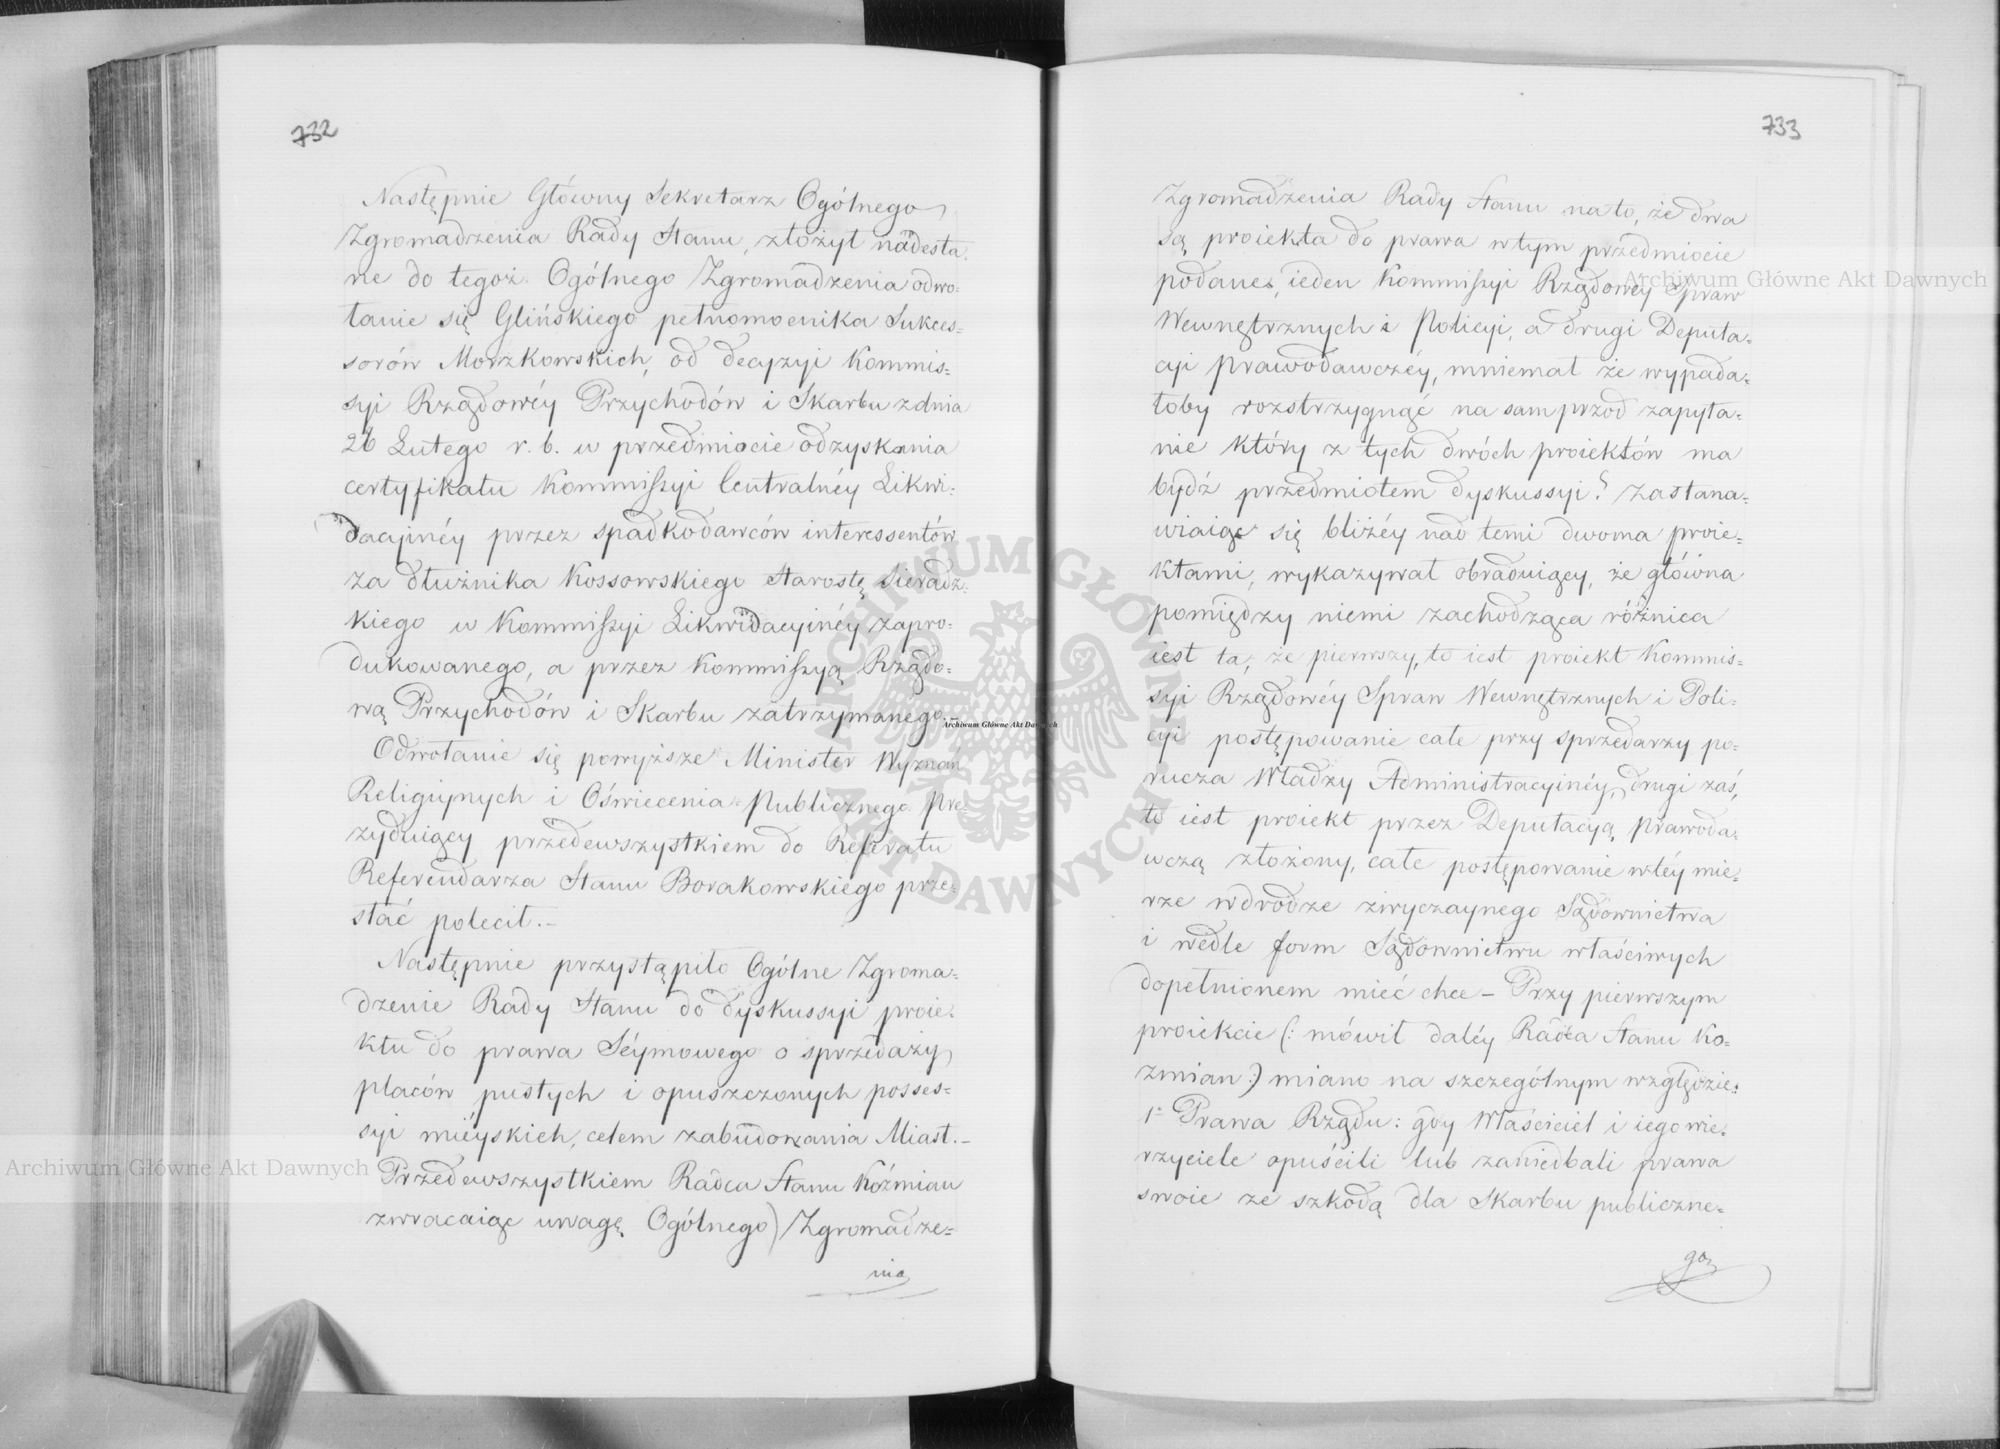 732
Następnie Główny Sekretarz Ogólnego
Zgromadzenia Rady Stanu, złożył nadesła
ne do tegoż Ogólnego Zgromadzenia odwo:
łanie się Glińskiego pełnomocnika Sukces=
sorów Morzkowskich, od decyzyi Kommis=
syi Rządowéy Przychodów i Skarbu z dnia
26 Lutego r. b. w przedmiocie odzyskania
certyfikatu Kommissyi Centralnéy Likwi:
dacyinéy przez spadkodawców interessentów
za dłużnika Kossowskiego Starostę Sieradz:
kiego w Kommissyi Likwidacyinéy zapro:
dukowanego, a przez Kommissyą Rządo=
wą Przychodów i Skarbu zatrzymanego.—
Odwołanie się powyższe Minister Wyznań
Religiynych i Oświecenia Publicznego pre
zyduiący przedewszystkiem do Referatu
Referendarza Stanu Borakowskiego prze=
słać polecił.—
Następnie przystąpiło Ogólne Zgroma=
dzenie Rady Stanu do dyskussyi proie:
ktu do prawa Séymowego o sprzedaży
placów pustych i opuszczonych posses=
syi miéyskich, celem zabudowania Miast.—
Przedewszystkiem Radca Stanu Koźmian
zwracaiąc uwagę Ogólnego Zgromadze=
nia
733
Zgromadzenia Rady Stanu na to, że dwa
są proiekta do prawa w tym przedmiocie
podane, ieden Kommissyi Rządowéy Spraw
Wewnętrznych i Policyi, a drugi Deputa=
cyi Prawodawczéy, mniemał że wypada=
łoby rozstrzygnąć na sam przod zapyta=
nie który z tych dwóch proiektów ma
bydź przedmiotem dyskussyi? Zastana=
wiaiąc się bliżéy nad temi dwoma proie=
ktami, wykazywał obraduiącey, że główna
pomiędzy niemi zachodząca różnica
iest ta, że pierwszy, to iest proiekt Kommis=
syi Rządowéy Spraw Wewnętrznych i Poli=
cyi postępowanie całe przy sprzedarzy po=
rucza Władzy Administracyinéy, drugi zaś,
to iest proiekt przez Deputacyą Prawoda=
wczą złożony, całe postępowanie w téy mie=
rze w drodze zwyczaynego Sądownictwa
i wedle form Sądownictwu właściwych
dopełnionem mieć chce — Przy pierwszym
proiekcie (: mówił daléy Radca Stanu Ko=
zmian :) miano na szczególnym względzie:
1= Prawa Rządu: gdy Właściciel i iego wie=
rzyciele opuścili lub zaniedbali prawa
swoie ze szkodą dla Skarbu publiczne=
go
Archiwum Główne Akt Dawnych
Archiwum Główne Akt Dawnych
Archiwum Główne Akt Dawnych
ARCHIWUM GŁÓWNE · AKT DAWNYCH ·